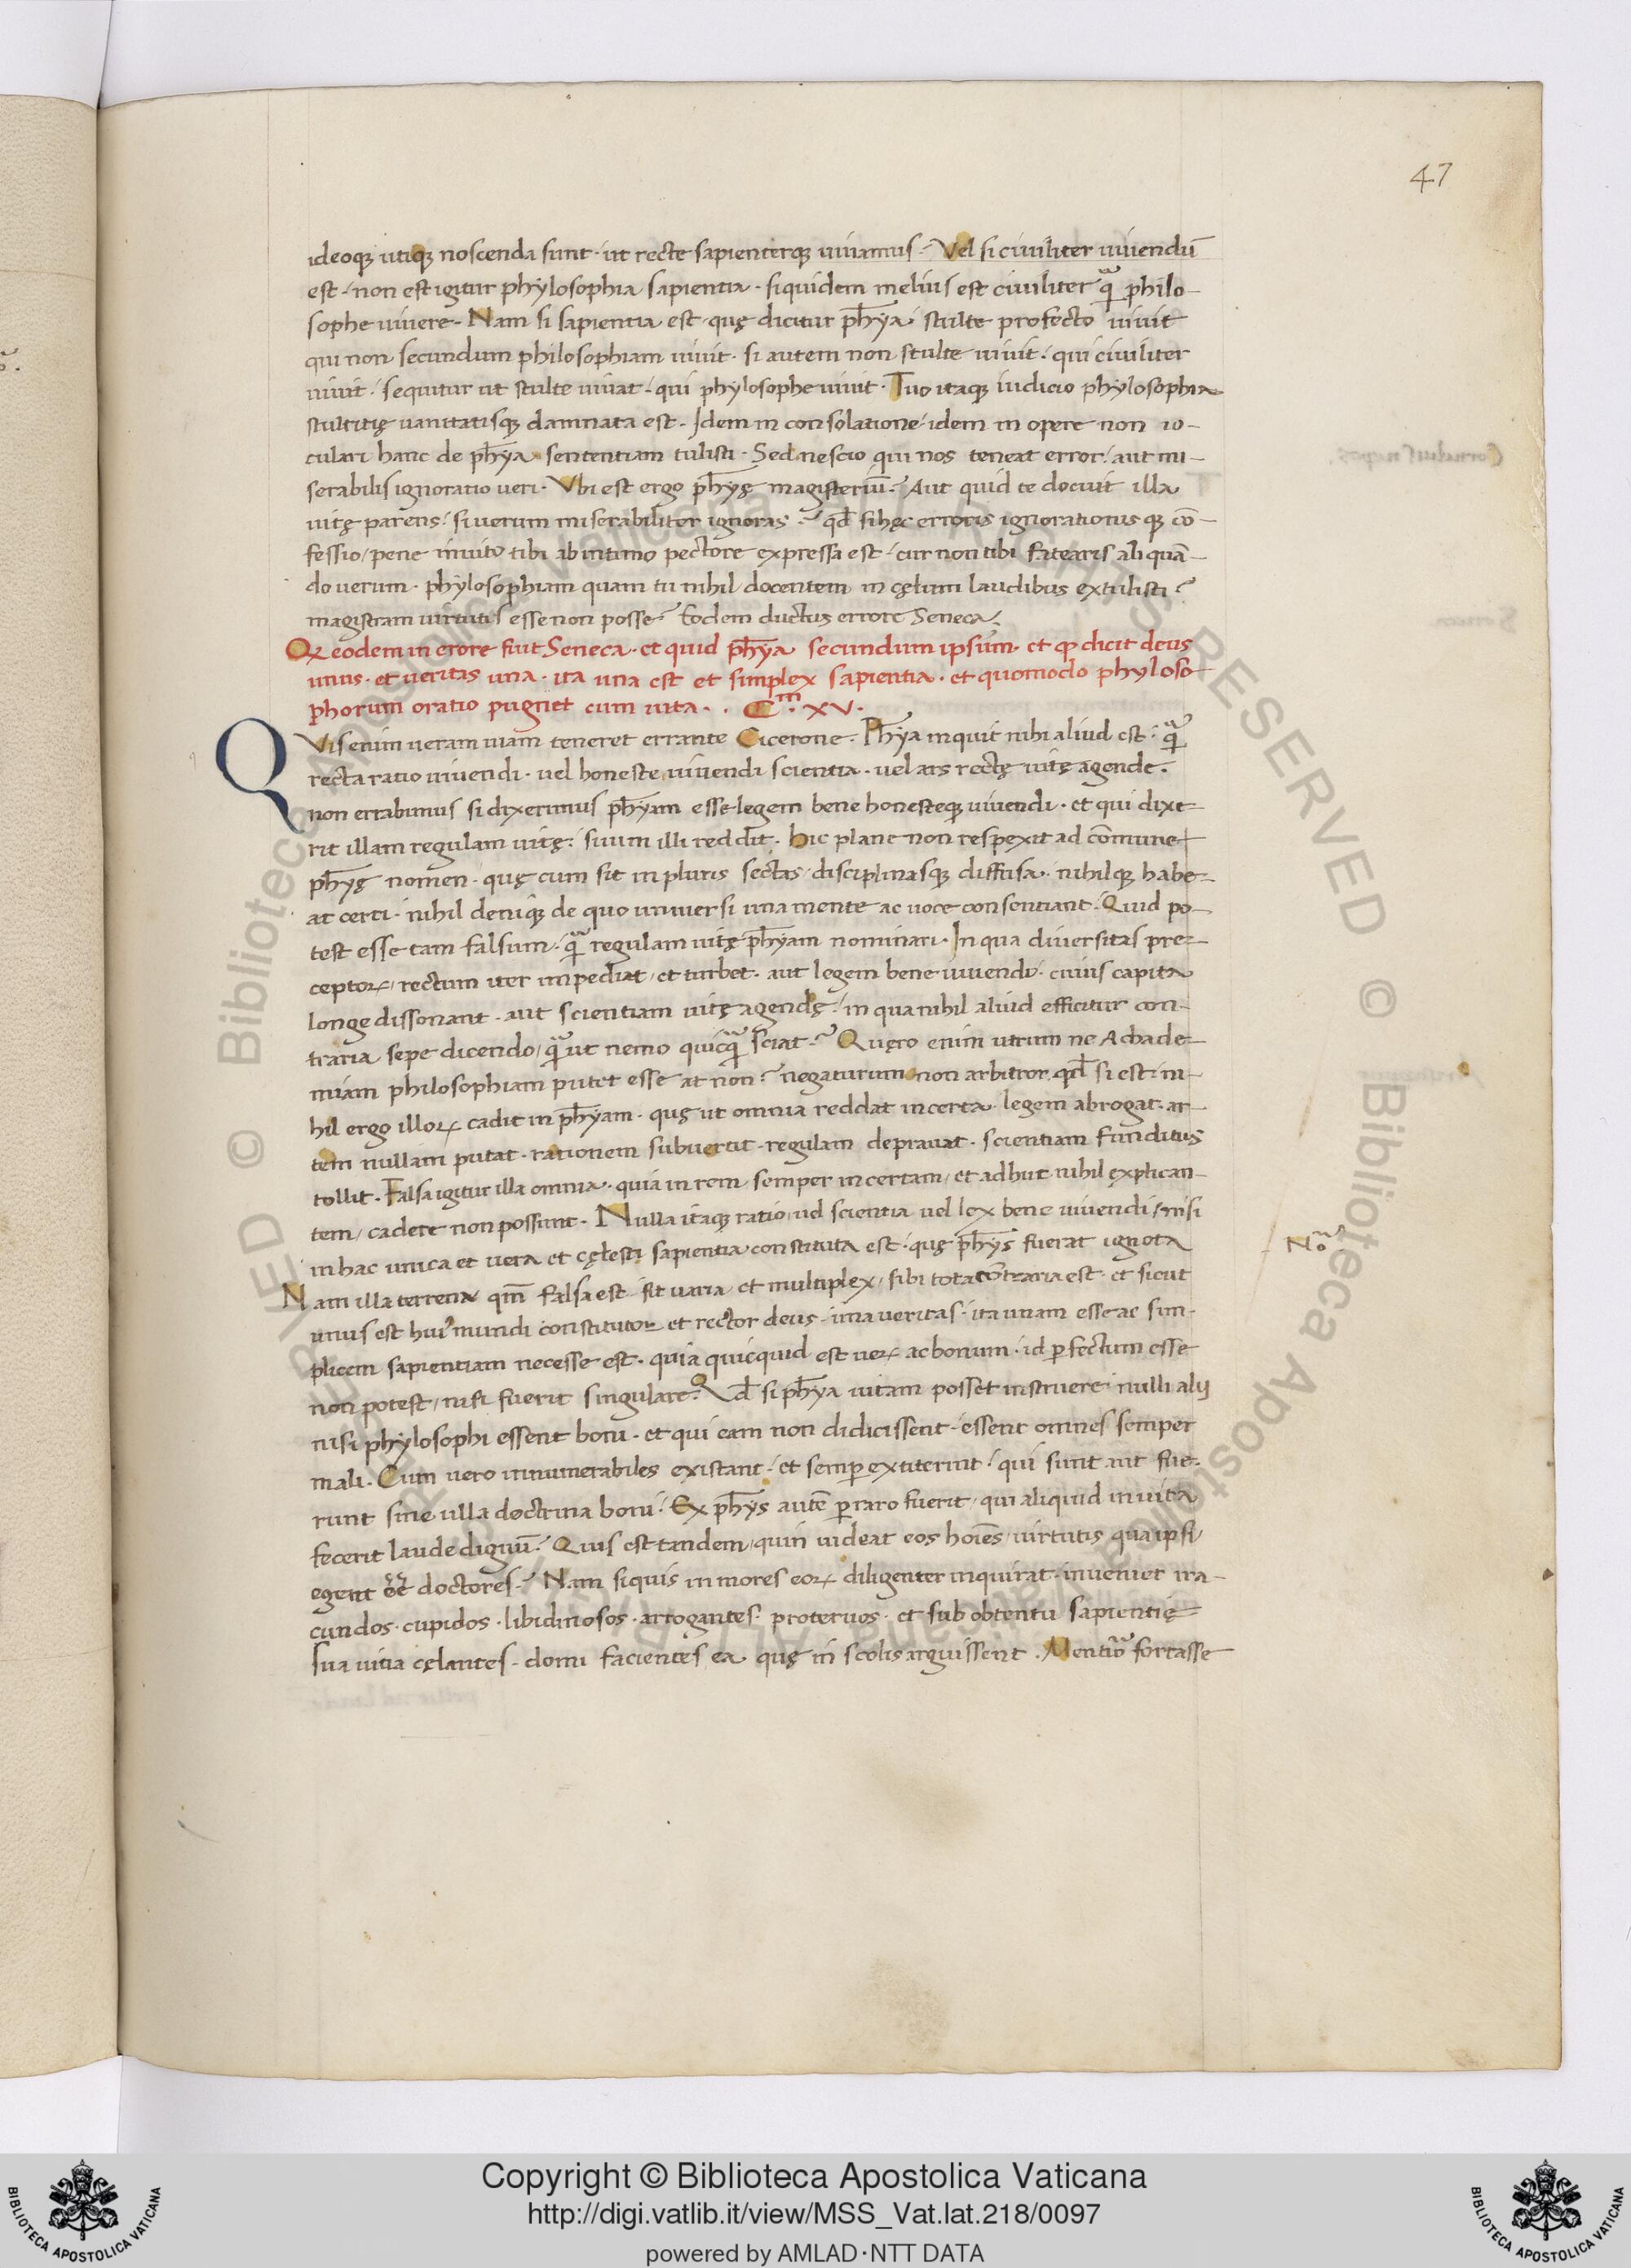 47
ideoq; utiq; noscenda sunt · ut recte sapienterq; uiuamus · Vel si ciuiliter uiuendū
est · non est igitur phylosophia sapientia · siquidem melius est ciuiliter q̃ philo-
sophe uiuere · Nam si sapientia est · quę dicitur ph̄ya · stulte profecto uiuit
qui non secundum philosophiam uiuit · si autem non stulte uiuit · qui ciuiliter
uiuit · sequitur ut stulte uiuat · qui phylosophe uiuit · Tuo itaq; iudicio phylosophia
stultitię uanitatisq; damnata est · Idem in consolatione · idem in opere non io-
culari hanc de ph̄ya sententiam tulisti · Sed nescio qui nos teneat error · aut mi-
serabilis ignoratio ueri · Vbi est ergo ph̄yę magisteriū? Aut quid te docuit illa
uitę parens · si uerum miserabiliter ignoras? qđ si hęc erroris ignorationisq; cō-
fessio / pene inuito tibi ab intimo pectore expressa est · cur non tibi fatearis aliquā-
do uerum · phylosophiam quam tu nihil docentem in cęlum laudibus extulisti ·
magistram uirtutis esse non posse? Eodem ductus errore Seneca ·
Qꝫ eodem in erore fuit Seneca · et quid ph̄ya secundum ipsum · et qꝫ dicit deus
unus · et ueritas una · ita una est et simplex sapientia · et quomodo phyloso-
phorum oratio pugnet cum uita · Cᵐ · XV ·
QVis enim ueram uiam teneret errante Cicerone · Ph̄ya inquit nihi aliud est · q̃
recta ratio uiuendi · uel honeste uiuendi scientia · uel ars rectę uitę agende ·
non errabimus si dixerimus ph̄yam esse legem bene honesteq; uiuendi · et qui dixe-
rit illam regulam uitę · suum illi reddit · hic plane non respexit ad cōmune
ph̄yę nomen · quę cum sit in pluris sectas · disciplinasq; diffusa · nihilq; habe-
at certi · nihil deniq; de quo uniuersi una mente ac uoce consentiant · Quid po-
test esse tam falsum · q̃ regulam uitę ph̄yam nominari · In qua diuersitas pre-
ceptoꝝ / rectum iter impediat / et turbet · aut legem bene iuuendi · cuius capita
longe dissonant · aut scientiam uitę agendę · in qua nihil aliud efficitur con-
traria sepe dicendo / q̃ ut nemo quicq̃ sciat? Quęro enim utrum ne Achade-
miam philosophiam putet esse at non? negaturum non arbitror · qđ si est · ni-
hil ergo illoꝝ cadit in ph̄yam · quę ut omnia reddat incerta · legem abrogat · ar-
tem nullam putat · rationem subuertit · regulam deprauat · scientiam funditus
tollit · Falsa igitur illa omnia · quia in rem semper incertam / et adhuc nihil explican-
tem / cadere non possunt · Nulla itaq; ratio uel scientia uel lex bene uiuendi / nisi
in hac unica et uera et cęlesti sapientia constituta est · quę ph̄ys fuerat ignota
Nam illa terrena qm̄ falsa est · fit uaria · et multiplex / sibi tota cōtraria est · et sicut
unus est huiꝰ mundi constitutor et rector deus · una ueritas · ita unam esse ac sim-
plicem sapientiam necesse est · quia quicquid est ueꝝ ac bonum · id ꝑfectum esse
non potest / nisi fuerit singulare · Qđ si ph̄ya uitam posset instruere · nulli alij
nisi phylosophi essent boni · et qui eam non didicissent · essent omnes semper
mali · Cum uero innumerabiles existant · et semꝑ extiterint · qui sunt aut fue-
runt sine ulla doctrina boni · Ex ph̄ys autē ꝑraro fuerit / qui aliquid in uita
fecerit laude dignū · Quis est tandem / quin uideat eos hoīes / uirtutis qua ipsi
egent doctores? Nam siquis in mores eoꝝ diligenter inquirat · inueniet ira-
cundos · cupidos · libidinosos · arrogantes · proteruos · et sub obtentu sapientię
sua uitia cęlantes · domi facientes ea quę in scolis arguissent · fortasse
Nᵃo
Copyright © Biblioteca Apostolica Vaticana
http://digi.vatlib.it/view/MSS_Vat.lat.218/0097
powered by AMLAD·NTT DATA
BIBLIOTECA APOSTOLICA VATICANA
BIBLIOTECA APOSTOLICA VATICANA